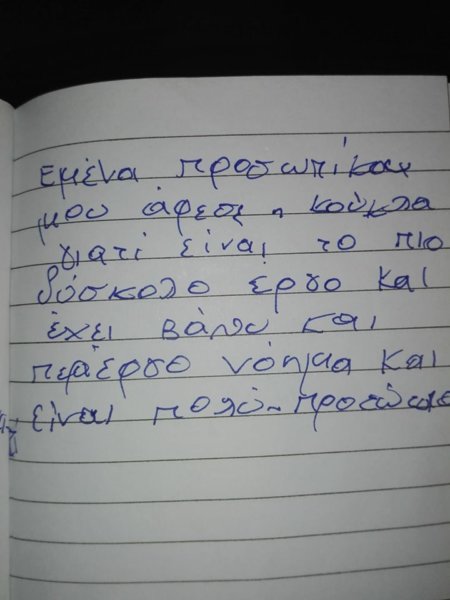 Εμένα προσωπικα
μου άρεσε η κούκλα
γιατί είναι το πιο
δύσκολο έργο και
έχει βάθυ και
περίεργο νόημα και
είναι πολύ